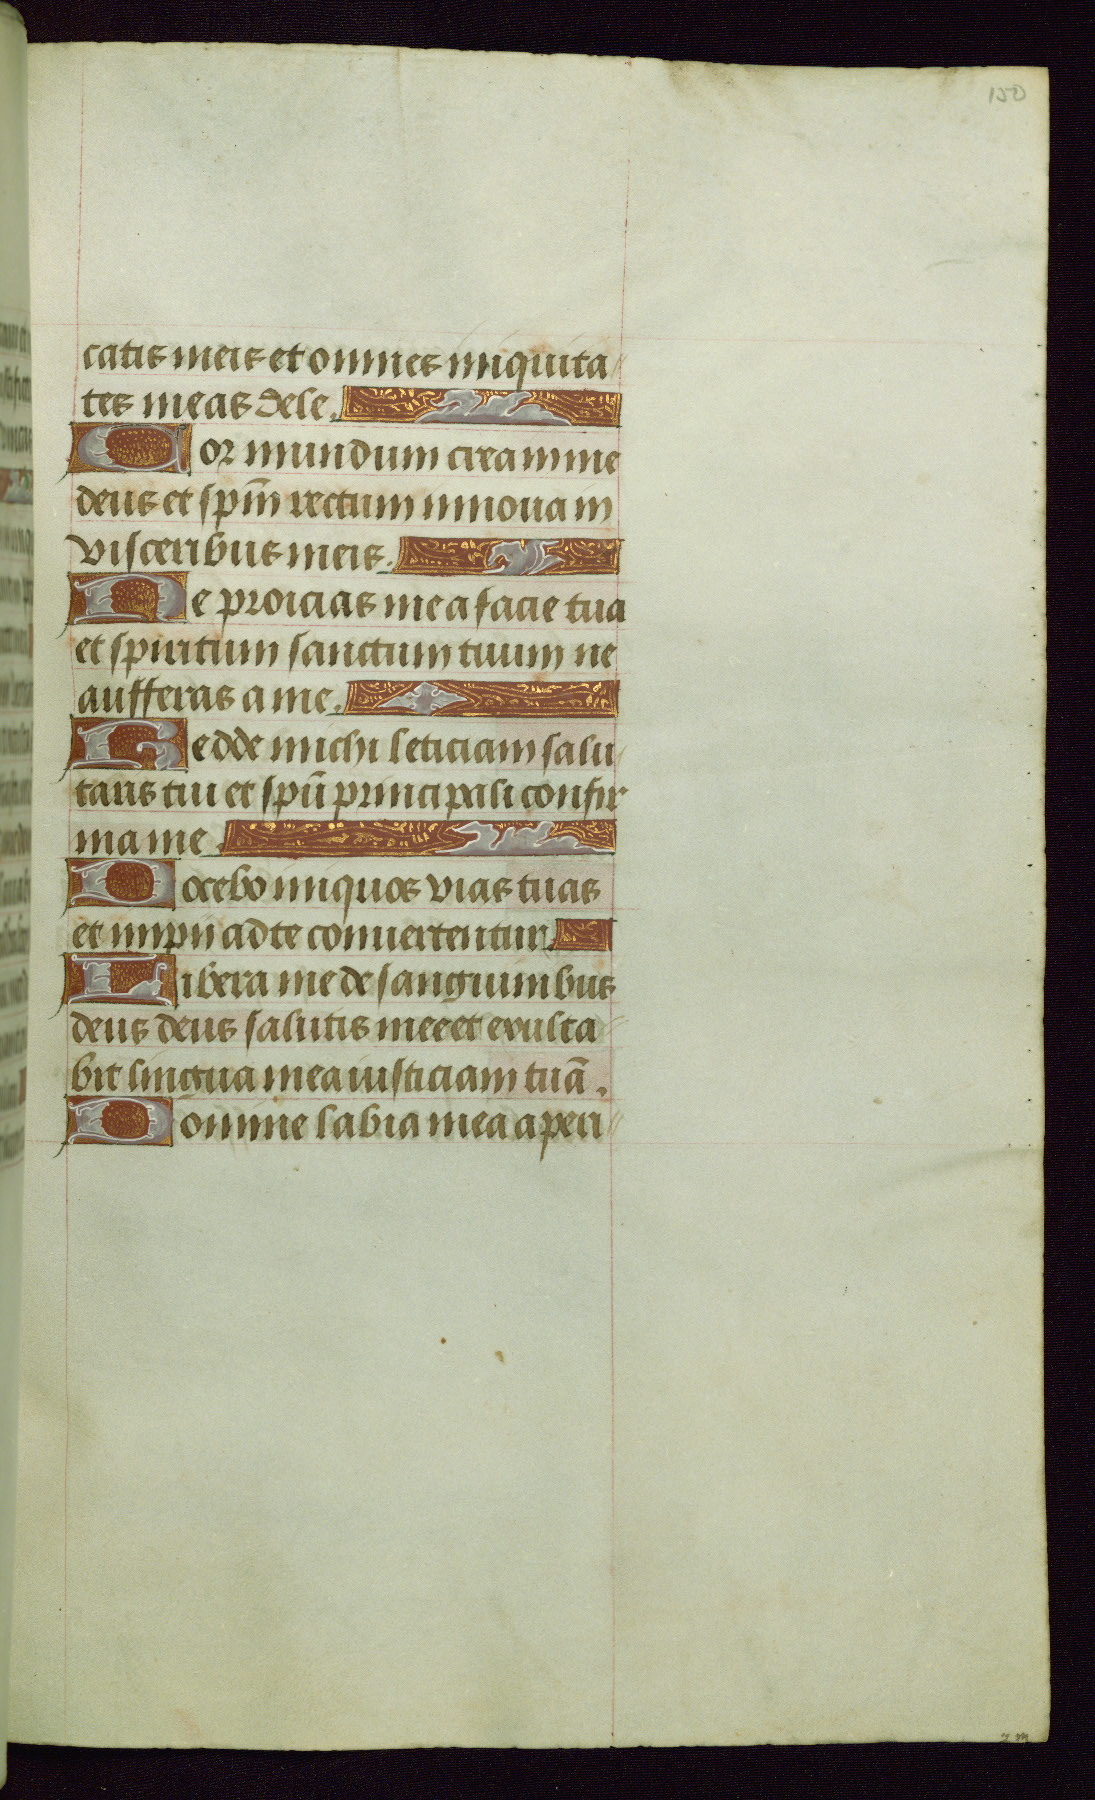 150
catis meis et omnes iniquita
tes meas dele.
Cor mundum crea in me
deus et spm̄ rectum innoua in
visceribus meis.
Ne proicias me a facie tua
et spiritum sanctum tuum ne
aufferas a me.
Redde michi leticiam salu
taris tui et spū principali confir
ma me.
Docebo iniquos vias tuas
et impii ad te conuertentur.
Libera me de sanguinibus
deus deus salutis mee et exulta
bit lingua mea iusticiam tuā.
Domine labia mea aperi